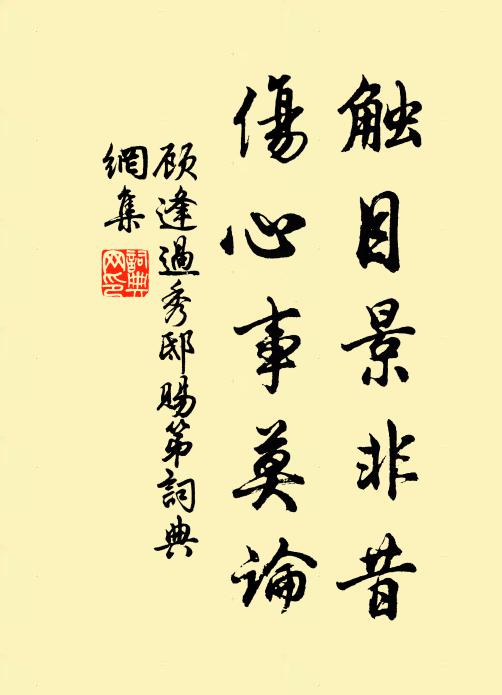 触目景非昔
傷心事莫論
顾逢過秀邸賜第詞典
網集
詞典
网印